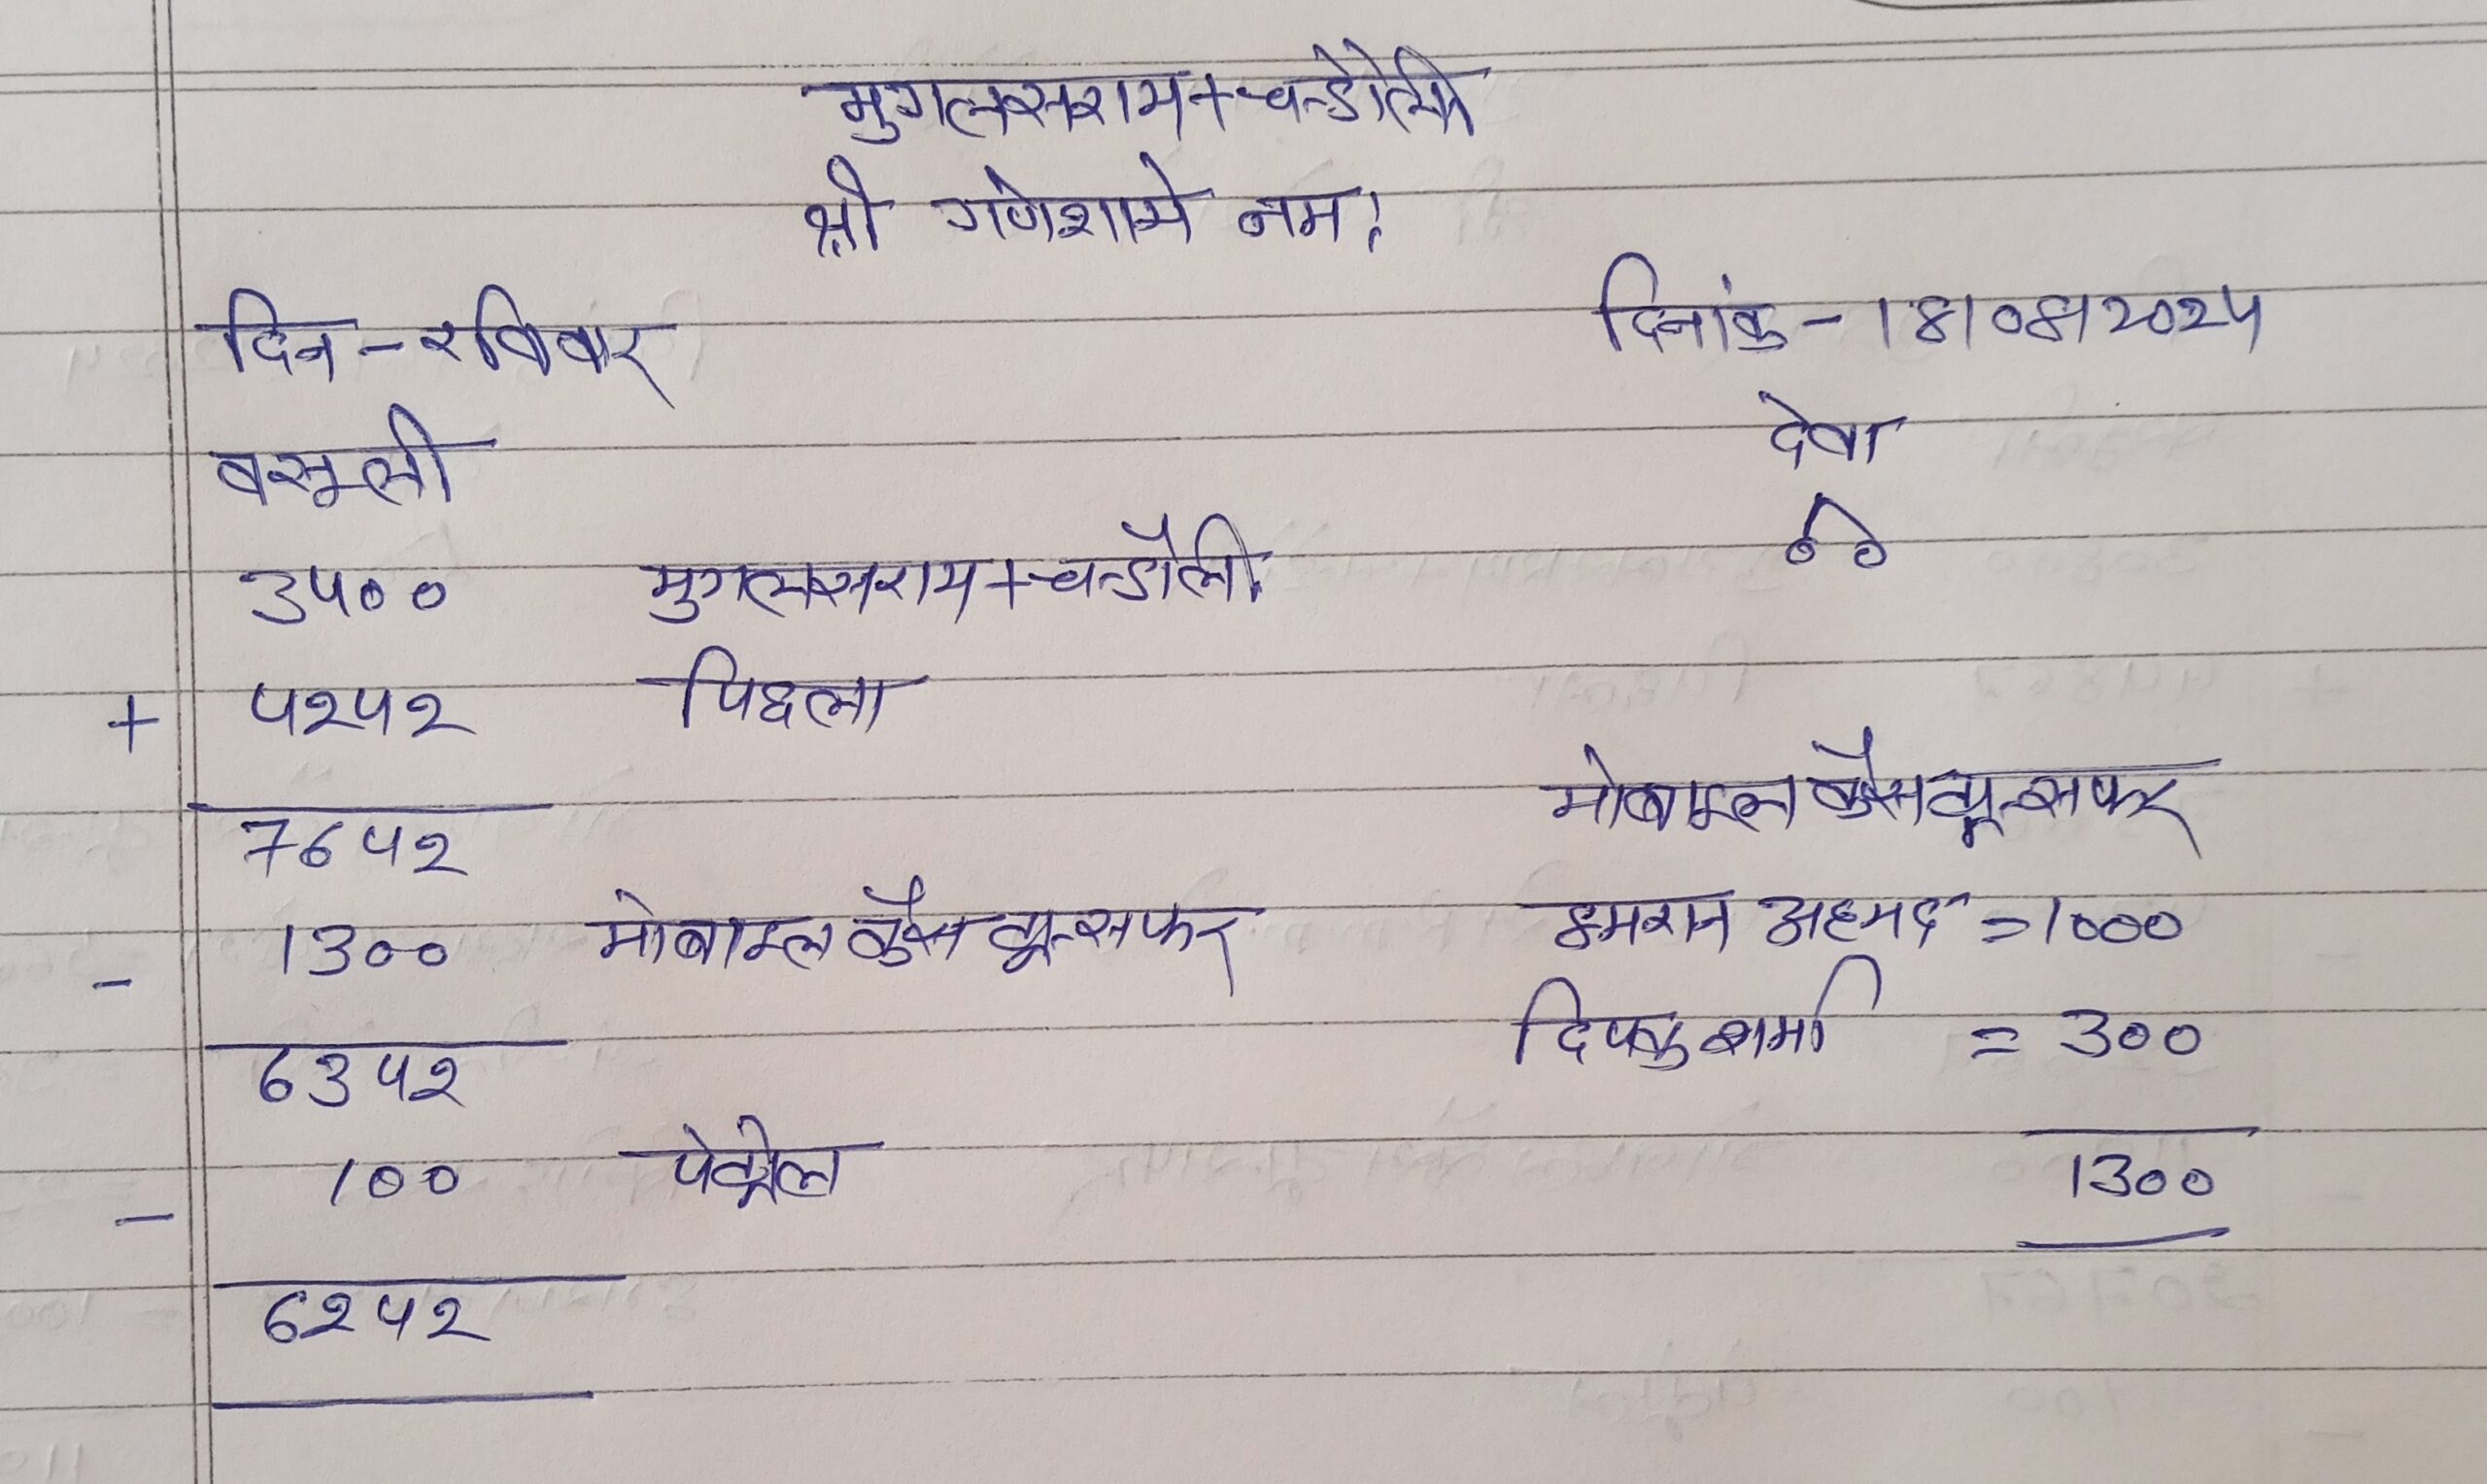 मुगलसराय+चन्डोली
श्री गणेशाये नमः
दिन-रविवार दिनांक-18/08/2024
वसूली देवा
3400 मुगलसराय+चन्डौली 00
+ 4242 पिछला
7642 मोबाइल कैस ट्रान्सफर
- 1300 मोबाइल कैस ट्रान्सफर इमरान अहमद =1000
6342 दिपक शर्मा = 300
- 100 पेट्रोल 1300
6242